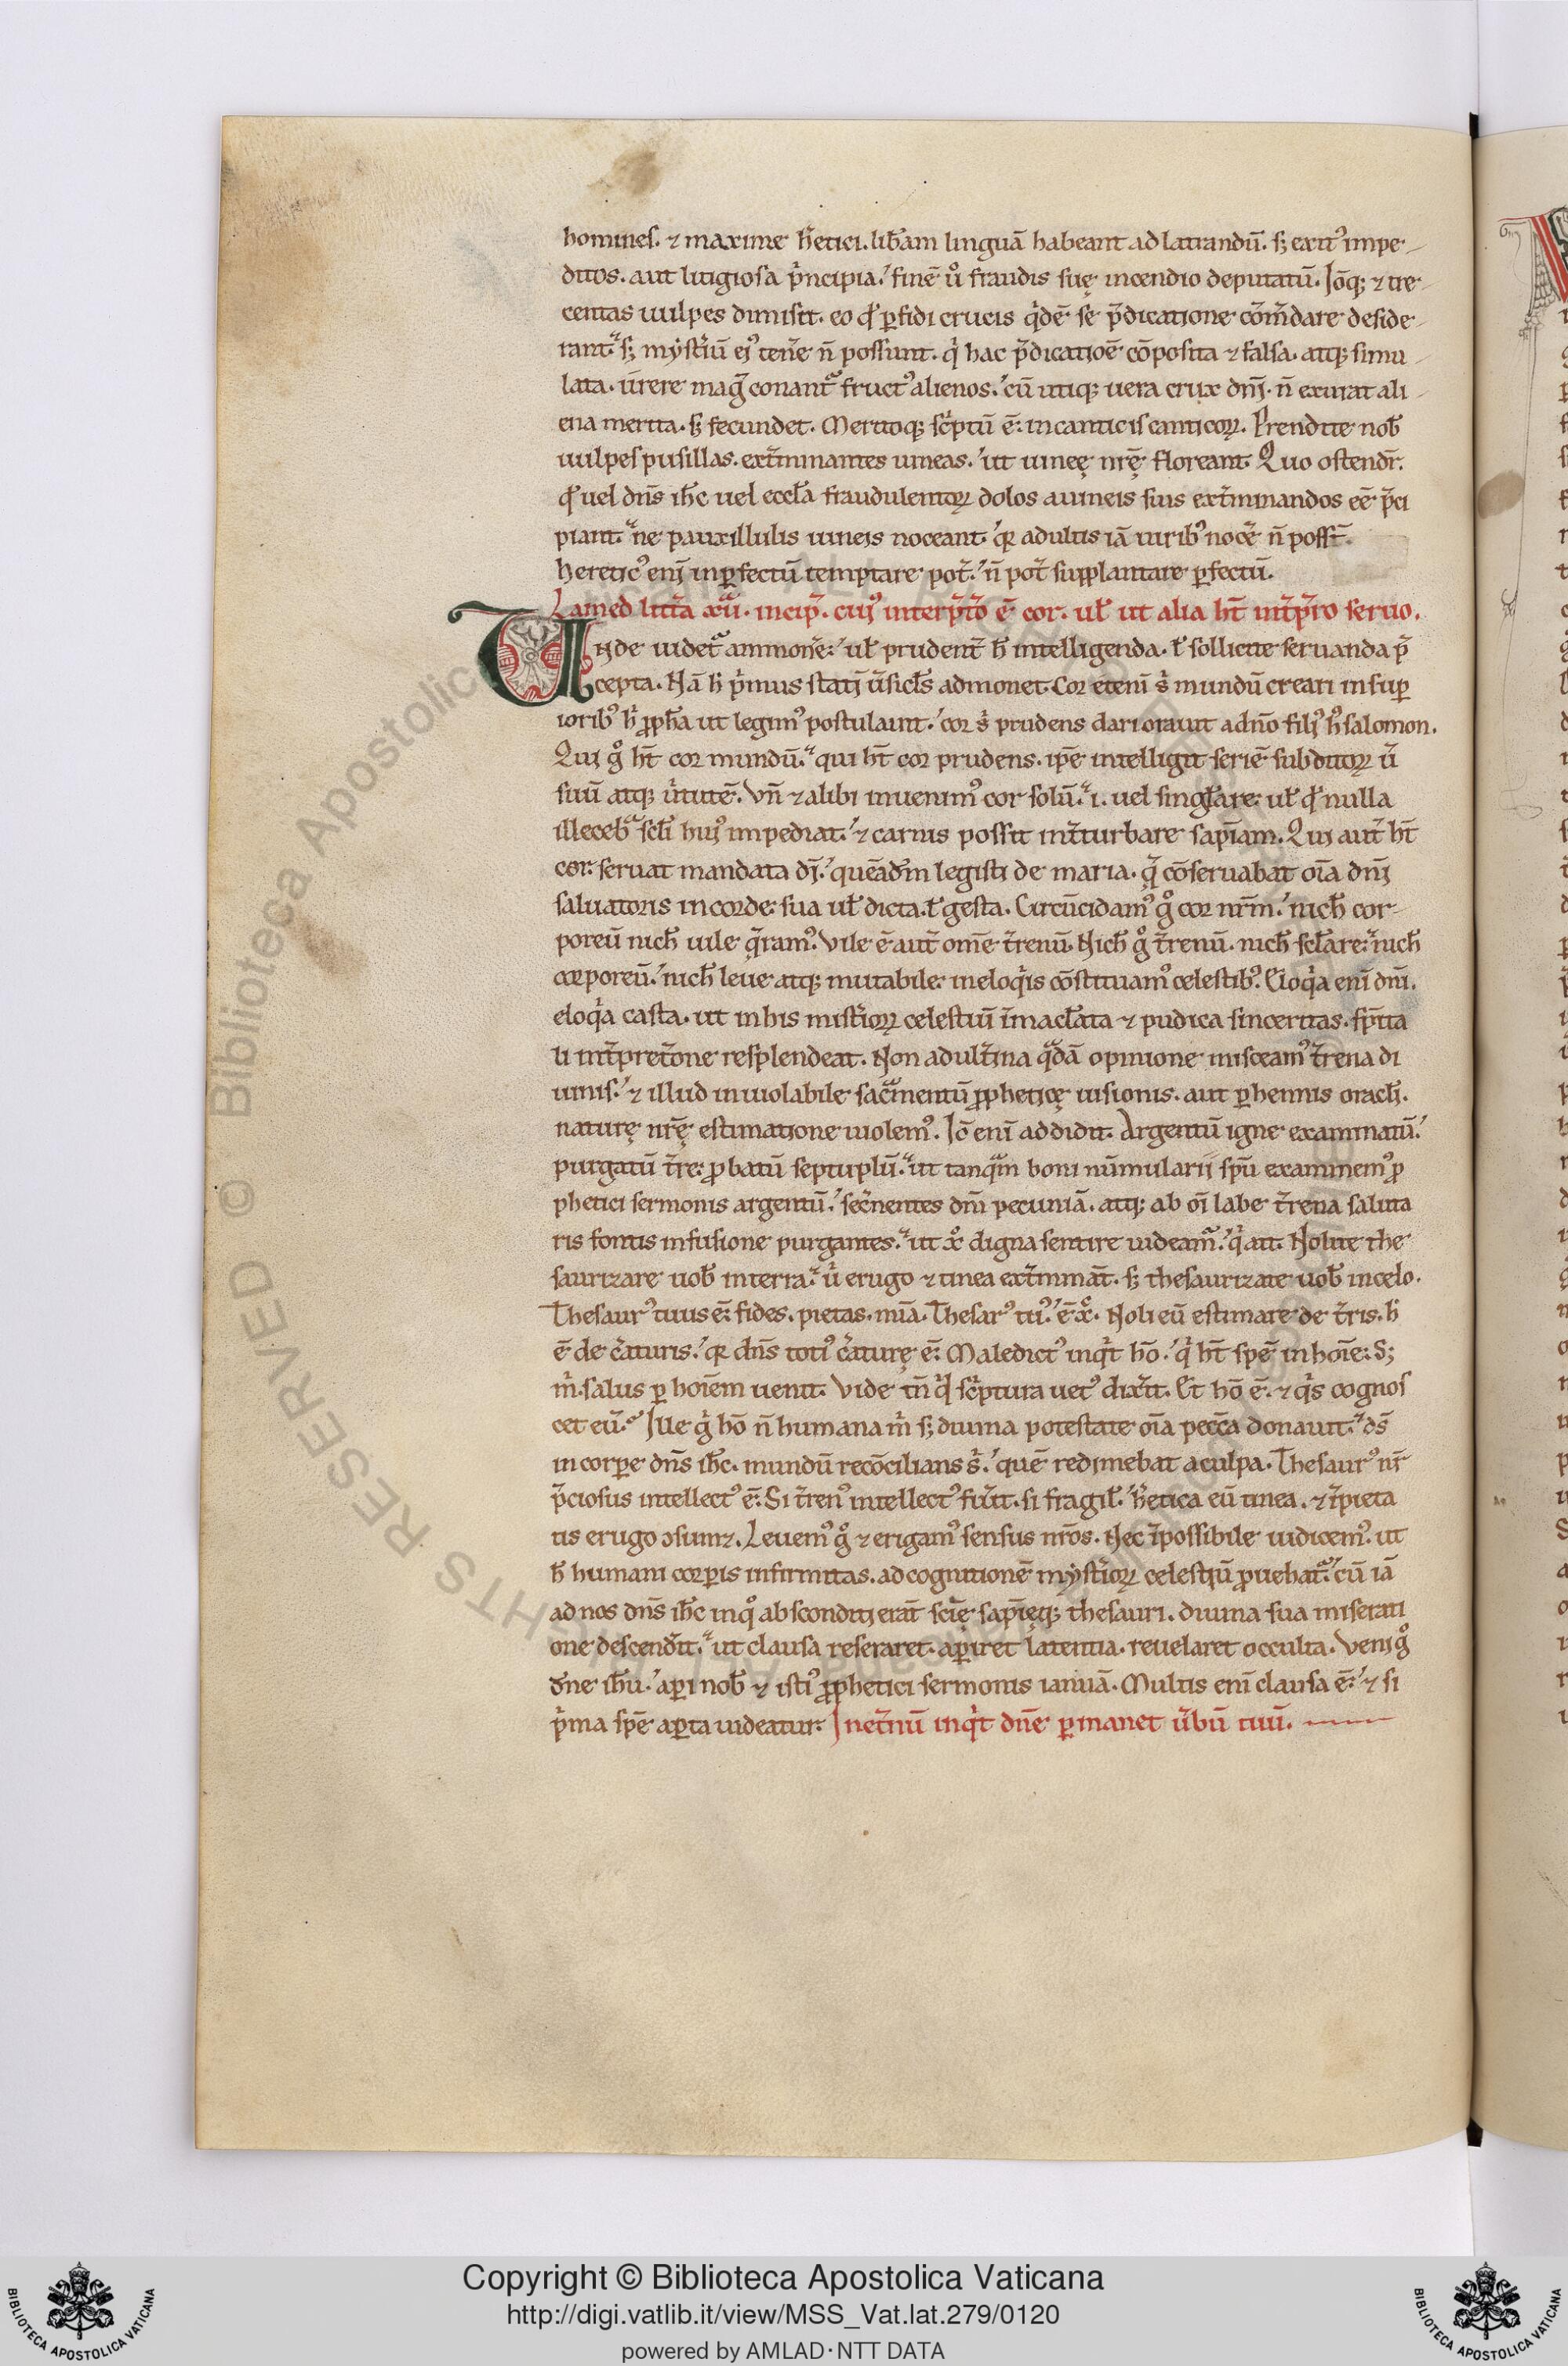 homines. ⁊ maxime h̄etici. lib̄am linguā habeant ad latrandū. sꝫ exitꝰ impe-
ditos. aut litigiosa p̄ncipia. finē ů fraudis suę incendio deputatū. Iōqꝫ ⁊ tre-
centas uulpes dimisit. eo qđ ꝑfidi crucis q̇dē se p̄dicatione cōm̄dare deside-
rant. sꝫ mẏst̄iū eiꝰ ten̄e n̄ possunt. q̇ hac p̄dicatioē cōposita ⁊ falsa. atqꝫ simu-
lata. urere maḡ conant᷑ fructꝰ alienos. cū utiqꝫ uera crux dnī. n̄ exurat ali-
ena merita. sꝫ fecundet. Meritoqꝫ sc̄ptū ē. in canticis canticoꝝ. Prendite nob̄
uulpes pusillas. ext̄minantes uineas. ut uineę nr̄ę floreant. Quo ostendr̄.
qđ uel dn̄s ih̄c uel eccl̄a fraudulentoꝝ dolos a uineis suis ext̄minandos eē p̄ci
piant. ne pauxillulis uineis noceant. qꝛ adultis iā uiribꝰ noc̄e n̄ poss̄t.
Hereticꝰ enī inꝑfectū temptare pot̄. n̄ pot̄ supplantare ꝑfectū.
Lamed litt̄a xii. incip̄. cuiꝰ interp̄t̄o ē cor. ul̄ ut alia ht̄ int̄p̄t̄o seruo.
Unde uidet᷑ ammon̄e. ul̄ prudent̄ h̄ intelligenda. l̄ sollicite seruanda p̄
cepta. Nā h̄ p̄mus statī ūsicl̄s admonet. Cor etenī s̄ mundū creari in suꝑ
ioribꝰ h̄ ꝓph̄a ut legimꝰ postulauit. cor s̄ prudens dari orauit a dn̄o filiꝰ hꝰ salomon.
Qui g̊ ht̄ cor mundū. qui ht̄ cor prudens. ip̄e intelligit seriē subditoꝝ ū
suū atqꝫ ūtutē. Vn̄ ⁊ alibi inuenimꝰ cor solū. i. uel singl̄are. ul̄ qđ nulla
illeceb̄ scl̄i huiꝰ impediat. ⁊ carnis possit int̄turbare sap̄iam. Qui aut̄ ht̄
cor. seruat mandata dī. quēadm̄ legisti de maria. q̄ cōseruabat oīa dnī
saluatoris in corde sua ul̄ dicta. l̄ gesta. Circūcidamꝰ g̊ cor nr̄m. nich̄ cor-
poreū nich̄ uile q̄ramꝰ. Vile ē aut̄ om̄e t̄renū. Nich̄ g̊ t̄renū. nich̄ scl̄are. nich̄
corporeū. nich̄ leue atqꝫ mutabile. in eloq̇is cōstituamꝰ celestibꝰ. Eloq̇a enī dnī.
eloq̇a casta. ut in his mist̄ioꝝ celestiū īmacl̄ata ⁊ pudica sinceritas. sp̄ita
li int̄pret̄one resplendeat. Non adult̄ina q̄dā opinione misceamꝰ t̄rena di
uinis. ⁊ illud inuiolabile sac̄mentū ꝓpheticę uisionis. aut ꝑhennis oracl̄i.
naturę nr̄ę estimatione uiolemꝰ. Iō enī addidit. Argentū igne examinatū.
purgatū t̄re. ꝓbatū septuplū. ut tanq̄m boni nūmularii sp̄u examinemꝰ ꝓ
phetici sermonis argentū. sec̄nentes dnī pecuniā. atqꝫ ab oī labe t̄rena saluta
ris fontis infusione purgantes. ut x̊ digna sentire uideam᷑. q̇ ait. Nolite the
saurizare uob̄ in terra. u̇ erugo ⁊ tinea ext̄minat̄. sꝫ thesaurizate uob̄ in celo.
Thesaurꝰ tuus ē. fides. pietas. mīa. Thesarꝰ tuꝰ. ē x̊. Noli eū estimare de t̄ris. h̄
ē de c̄aturis. qꝛ dn̄s totiꝰ c̄aturę ē. Maledictꝰ inq̇t hō. q̇ ht̄ spē in hoīe. Sꝫ
m̄. salus ꝑ hoīem uenit. Vide tn̄ qđ sc̄ptura uetꝰ dix̄it. Et hō ē. ⁊ q̇s cognos
cet eū. Ille g̊ hō n̄ humana m̄ sꝫ diuina potestate oīa pecc̄a donauit. ds̄
in corꝑe dn̄s ih̄c. mundū recōcilians s̄. quē redimebat a culpa. Thesaurꝰ nr̄
p̄ciosus intellectꝰ ē. Si t̄renꝰ intellectꝰ fu̇it. si fragil̄. h̄etica eū tinea. ⁊ īpieta
tis erugo ↄsumet. Leuemꝰ g̊ ⁊ erigamꝰ sensus nr̄os. Nec īpossibile iudicemꝰ. ut
h̄ humani corꝑis infirmitas. ad cognitionē mẏst̄ioꝝ celestiū ꝓuehat᷑. cū iā
ad nos dn̄s ih̄c inq̊ absconditi erāt scīę sap̄ięqꝫ thesauri. diuina sua miserati
one descend̄it. ut clausa reseraret. aꝑiret latentia. reuelaret occulta. Veni g̊
dn̄e ih̄u. aꝑi nob̄ ⁊ istiꝰ ꝓphetici sermonis ianuā. Multis enī clausa ē. ⁊ si
p̄ma spē aꝑta uideatur. In et̄nū inq̇t dn̄e ꝑmanet ūbū tuū.
Copyright © Biblioteca Apostolica Vaticana
http://digi.vatlib.it/view/MSS_Vat.lat.279/0120
powered by AMLAD·NTT DATA